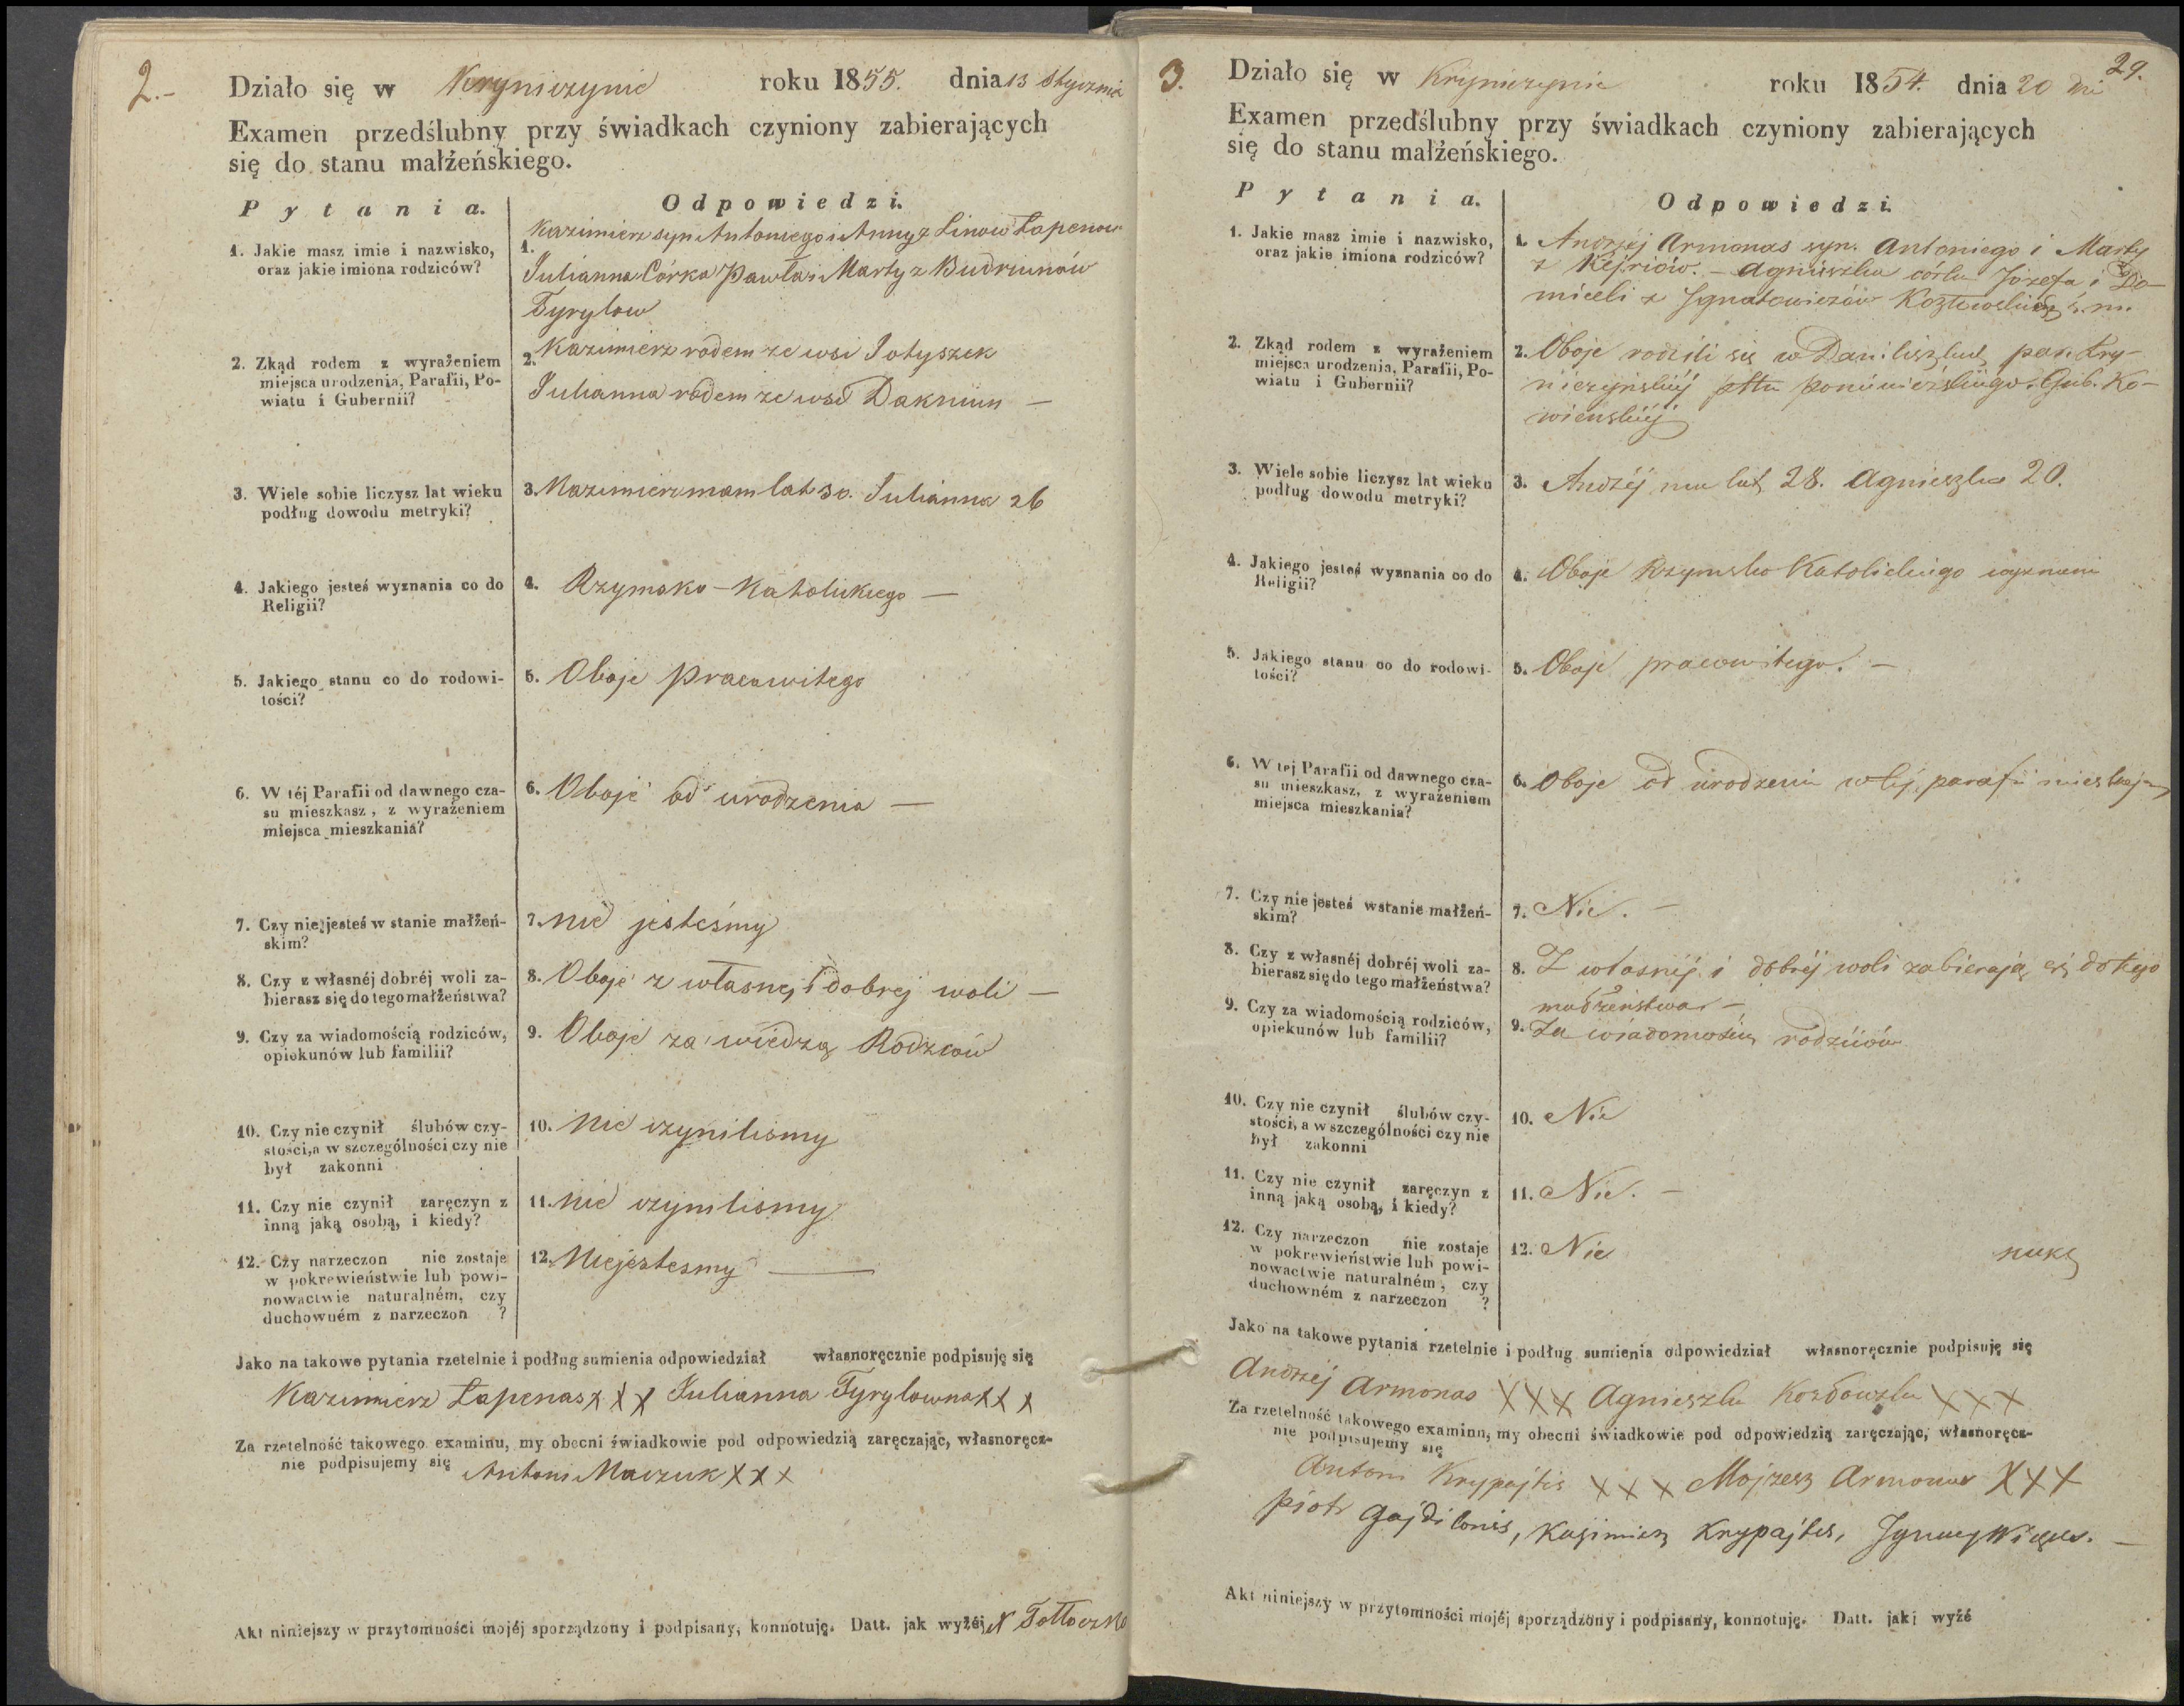 2.-
Działo się w Kryniczynie roku 1855. dnia 13 Stycznia
Examen przedślubny przy świadkach czyniony zabierających
się do stanu małżeńskiego.
Pytania.
Odpowiedzi.
1. Jakie masz imie i nazwisko,
oraz jakie imiona rodziców?
Kazimierz syn Antoniego i Anny z Linow Łapenow
1.
Julianna Córka Pawła i Marty z Budriunów
Tyrylow
2. Zkąd rodem z wyrażeniem
miejsca urodzenia, Parafii, Po-
wiatu i Gubernii?
2. Kazimierz rodem ze wsi Jotyszek
Julianna rodem ze wsi Dakniun —
3. Wiele sobie liczysz lat wieku
podług dowodu metryki?
3. Kazimierz mam lat 30. Julianna 26
4. Jakiego jesteś wyznania co do
Religii?
4. Rzymsko-Katolickiego —
5. Jakiego stanu co do rodowi-
tości?
5. Oboje Pracowitego
6. W téj Parafii od dawnego cza-
su mieszkasz, z wyrażeniem
miejsca mieszkania?
6. Oboje od urodzenia —
7. Czy nie jesteś w stanie małżeń-
skim?
7. nie jesteśmy
8. Czy z własnéj dobréj woli za-
bierasz się do tego małżeństwa?
8. Oboje z własnej i dobrej woli —
9. Czy za wiadomością rodziców,
opiekunów lub familii?
9. Oboje za wiedzą Rodzicow
10. Czy nie czynił ślubów czy-
stości, a w szczególności czy nie
był zakonni
10. nie czynilismy
11. Czy nie czynił zaręczyn z
inną jaką osobą, i kiedy?
11. nie czynilismy
12. Czy narzeczon nie zostaje
w pokrewieństwie lub powi-
nowactwie naturalném, czy
duchowném z narzeczon ?
12. Niejestesmy —
Jako na takowe pytania rzetelnie i podług sumienia odpowiedział własnoręcznie podpisuję się
Kazimierz Łapenas X X X Julianna Tyrylowna X X X
Za rzetelność takowego examinu, my obecni świadkowie pod odpowiedzią zaręczając, własnoręcz-
nie podpisujemy się Antoni Maczuk X X X
Akt niniejszy w przytomności mojéj sporządzony i podpisany, konnotuję. Datt. jak wyżéj X Tołłoczko
3.
29.
Działo się w Kryniczynie roku 1854. dnia 20
Examen przedślubny przy świadkach czyniony zabierających
się do stanu małżeńskiego.
Pytania.
Odpowiedzi.
1. Jakie masz imie i nazwisko,
oraz jakie imiona rodziców?
1. Andrzéj Armonas syn Antoniego i Marty
z Kejriów. – Agnieszka córka Józefa i Do-
miceli z Ignatowiczów
2. Zkąd rodem z wyrażeniem
miejsca urodzenia, Parafii, Po-
wiatu i Gubernii?
2. Oboje rodzili się w Daniliszkach par. Kry-
niczyńskiéj pttu poniewiezkiego. Gub. Ko-
wieńskiéj
3. Wiele sobie liczysz lat wieku
podług dowodu metryki?
3. Andrzéj ma lat 28. Agnieszka 20.
4. Jakiego jesteś wyznania co do
Religii?
4. Oboje Rzymsko Katolickiego wyznania
5. Jakiego stanu co do rodowi-
tości?
5. Oboje pracowitego. —
6. W tej Parafii od dawnego cza-
su mieszkasz, z wyrażeniem
miejsca mieszkania?
6. Oboje od urodzenia w téj parafii mieszkają
7. Czy nie jesteś wstanie małżeń-
skim?
7. Nie. —
8. Czy z własnéj dobréj woli za-
bierasz się do tego małżeństwa?
8. Z własnéj i dobréj woli zabierają się do tego
małżeństwa —
9. Czy za wiadomością rodziców,
opiekunów lub familii?
9. Za wiadomością rodziców
10. Czy nie czynił ślubów czy-
stości, a w szczególności czy nie
był zakonni
10. Nie
11. Czy nie czynił zaręczyn z
inną jaką osobą, i kiedy?
11. Nie. —
12. Czy narzeczon nie zostaje
w pokrewieństwie lub powi-
nowactwie naturalném, czy
duchowném z narzeczon ?
12. Nie
Jako na takowe pytania rzetelnie i podług sumienia odpowiedział własnoręcznie podpisuję się
Andrzéj Armonas X X X Agnieszka Kozłowska X X X
Za rzetelność takowego examinu, my obecni świadkowie pod odpowiedzią zaręczając, własnoręcz-
nie podpisujemy się
Antoni Krypajtis X X X Mojzesz Armonas X X X
Piotr Gajdilonis, Kazimierz Krypajtis, Ignacy
Akt niniejszy w przytomności mojéj sporządzony i podpisany, konnotuję. Datt. jak wyżé